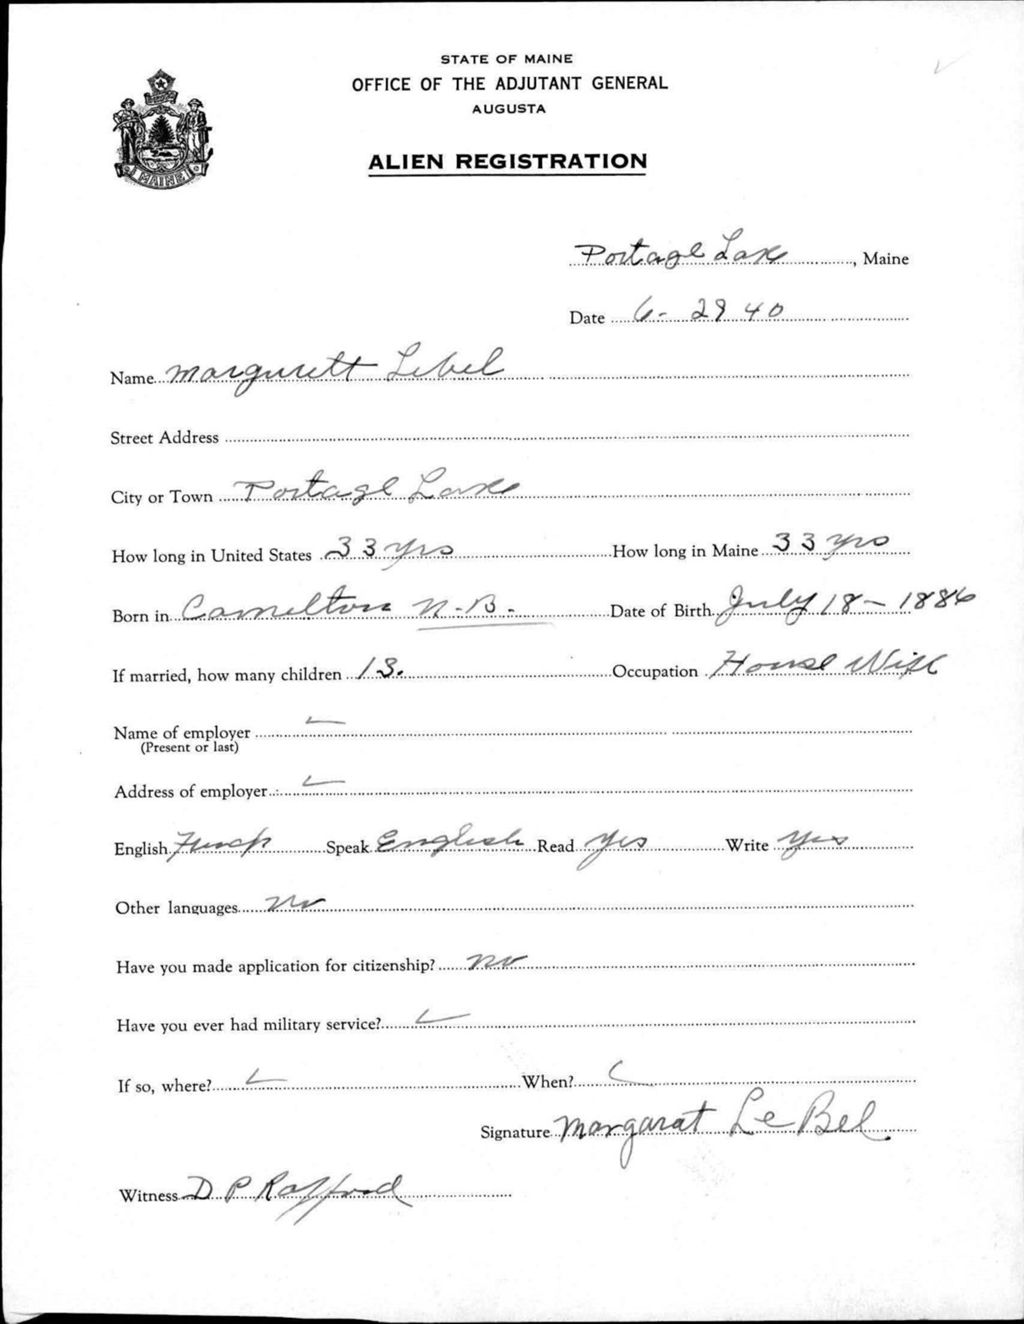 STATE OF MAINE
OFFICE OF THE ADJUTANT GENERAL
AUGUSTA
ALIEN REGISTRATION
MAINE
Portage Lake, Maine
Date 6- 29 40
Name Margurett Lebel
Street Address
City or Town Portage Lake
How long in United States 33 yrs How long in Maine 33 yrs
Born in Camelton N.B. Date of Birth July 18 - 1886
If married, how many children 13. Occupation House Wife
Name of employer
(Present or last)
Address of employer
English French Speak English Read Yes Write Yes
Other languages No
Have you made application for citizenship? No
Have you ever had military service?
If so, where? When?
Signature Margarat LeBel
Witness D P Rafford